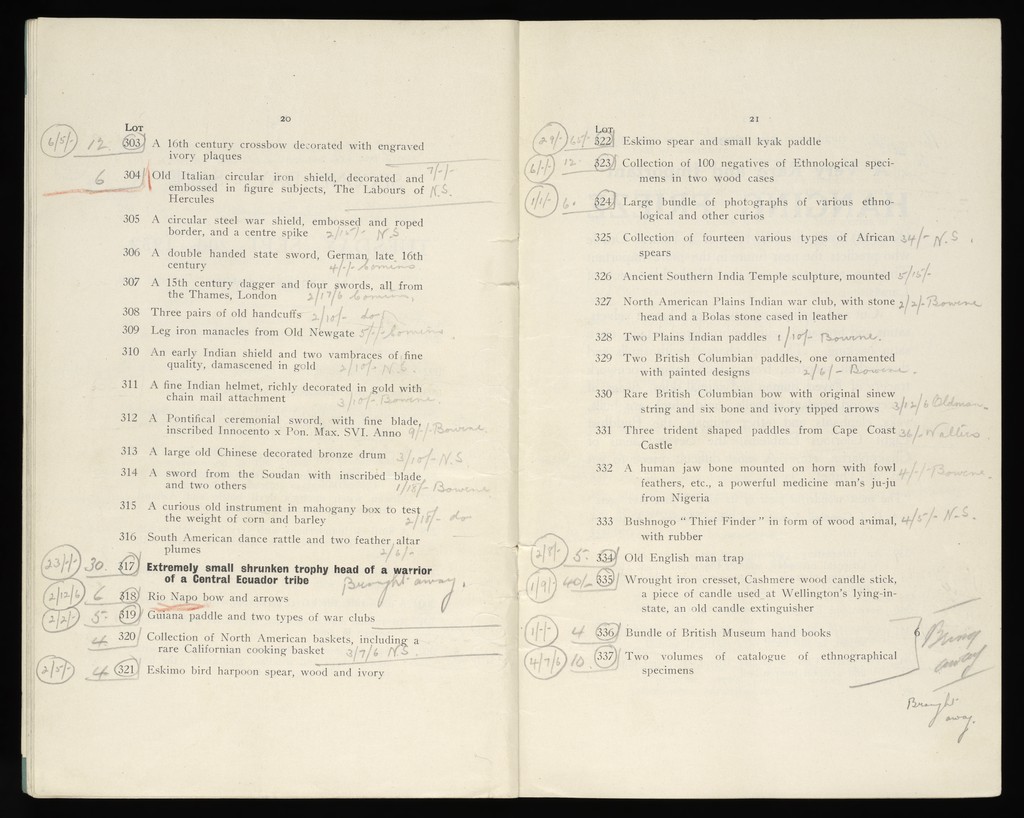 20
LOT
6/5/- 12 303 A 16th century crossbow decorated with engraved
ivory plaques
6 304 Old Italian circular iron shield, decorated and 7/-/-
embossed in figure subjects, The Labours of N.S.
Hercules
305 A circular steel war shield, embossed and roped
border, and a centre spike 2/15/- N.S
306 A double handed state sword, German, late 16th
century 4/-/-
307 A 15th century dagger and four swords, all from
the Thames, London 2/17/6
308 Three pairs of old handcuffs 2/10/- do
309 Leg iron manacles from Old Newgate 5/-/-
310 An early Indian shield and two vambraces of fine
quality, damascened in gold 2/10/- N.S.
311 A fine Indian helmet, richly decorated in gold with
chain mail attachment 3/10/- Bowene.
312 A Pontifical ceremonial sword, with fine blade,
inscribed Innocento x Pon. Max. SVI. Anno 9/-/- Bowene
313 A large old Chinese decorated bronze drum 3/10/- N.S
314 A sword from the Soudan with inscribed blade
and two others 1/18/- Bowene
315 A curious old instrument in mahogany box to test
the weight of corn and barley 2/18/- do
316 South American dance rattle and two feather altar
plumes 2/2/-
23/-/- 30. 317 Extremely small shrunken trophy head of a warrior
of a Central Ecuador tribe Brought away.
2/12/6 6 318 Rio Napo bow and arrows
2/2/- 5- 319 Guiana paddle and two types of war clubs
4 320 Collection of North American baskets, including a
rare Californian cooking basket 3/7/6 N.S.
2/5/- 4 321 Eskimo bird harpoon spear, wood and ivory
21
LOT
29/- 322 Eskimo spear and small kyak paddle
6/-/- 12. 323 Collection of 100 negatives of Ethnological speci-
mens in two wood cases
1/1/- 6. 324 Large bundle of photographs of various ethno-
logical and other curios
325 Collection of fourteen various types of African 34/- N.S.
spears
326 Ancient Southern India Temple sculpture, mounted 5/15/-
327 North American Plains Indian war club, with stone 2/2/- Bowene
head and a Bolas stone cased in leather
328 Two Plains Indian paddles 1/10/- Bowene.
329 Two British Columbian paddles, one ornamented
with painted designs 2/6/- Bowene.
330 Rare British Columbian bow with original sinew
string and six bone and ivory tipped arrows 3/12/6 Oldman.
331 Three trident shaped paddles from Cape Coast 36/- Walters
Castle
332 A human jaw bone mounted on horn with fowl 4/-/- Bowene.
feathers, etc., a powerful medicine man's ju-ju
from Nigeria
333 Bushnogo "Thief Finder" in form of wood animal, 4/5/- N.S.
with rubber
2/8/- 5- 334 Old English man trap
1/9/- 40/- 335 Wrought iron cresset, Cashmere wood candle stick,
a piece of candle used at Wellington's lying-in-
state, an old candle extinguisher
1/-/- 4 336 Bundle of British Museum hand books 6 Bring
away
4/7/6 10. 337 Two volumes of catalogue of ethnographical
specimens
Brought
away.